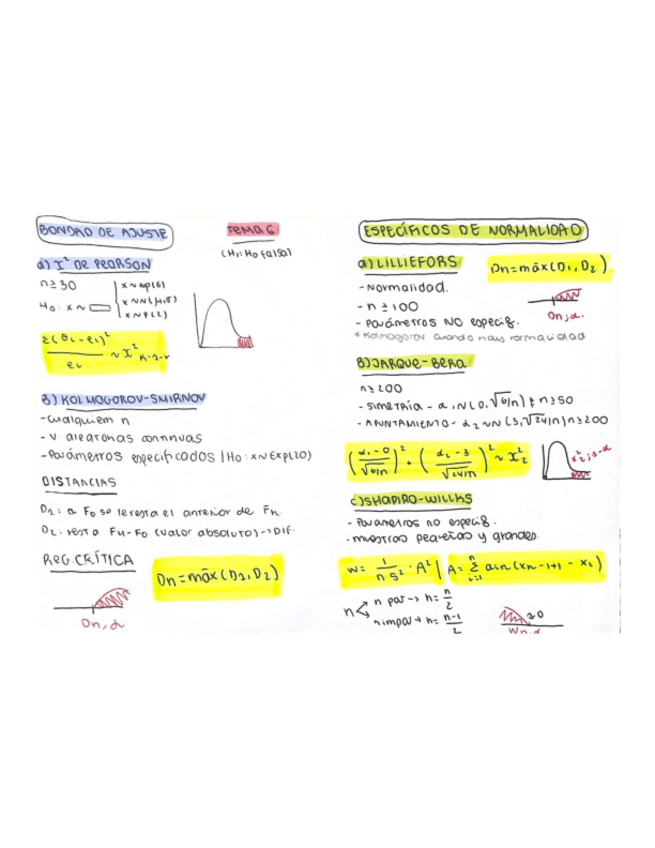 BONDAD DE AJUSTE
TEMA 6
(H1: H0 falsa)
a) X² DE PEARSON
n≥30
H0: X ~
x ~ exp(6)
x ~ N(μ,σ)
x ~ P(2)
Σ(Oi - ei)² / ei ~ X² K-1-r
b) KOLMOGOROV-SMIRNOV
-cualquier n
-v. aleatorias continuas
-Parámetros especificados | H0: x~Exp(20)
DISTANCIAS
D1: a F0 se le resta el anterior de Fn.
D2: resta Fn-F0 (valor absoluto) → Dif.
REG. CRÍTICA
Dn = máx (D1, D2)
Dn, α
ESPECÍFICOS DE NORMALIDAD
a) LILLIEFORS
Dn = máx (D1, D2)
- Normalidad.
- n ≥ 100
- Parámetros NO especif.
* Kolmogorov cuando hay normalidad
Dn; α.
b) JARQUE-BERA
n≥200
- Simetría - α1 N(0, √6/n) n≥50
- APUNTAMIENTO - α2 ~ N(3, √24/n) n≥200
(α1 - 0 / √6/n)² + (α2 - 3 / √24/n)² ~ X²2
X²2; 1-α
c) SHAPIRO-WILKS
- Parámetros no especif.
- muestras pequeñas y grandes.
W = 1 / n s² · A² | A = Σ ain (xn-i+1 - xi)
i=1
n
n par → h = n/2
n impar → h = n-1 / 2
Wn, α